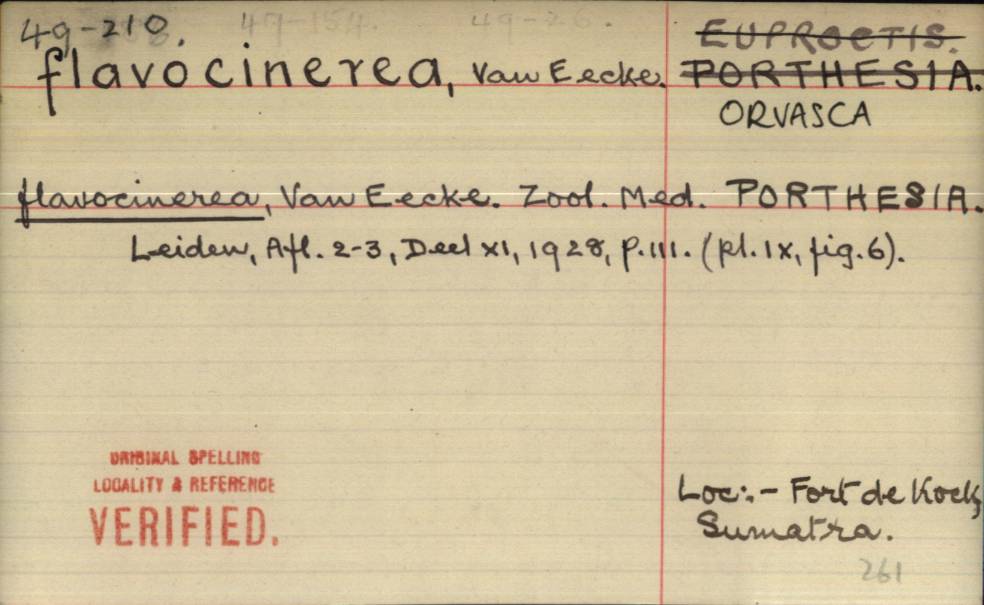 49-210. 47-154. 49-26.
flavocinerea, Van Eecke. EUPROCTIS.
PORTHESIA.
ORVASCA
flavocinerea, Van Eecke. Zool. Med. PORTHESIA.
Leiden, Afl. 2-3, Deel XI, 1928, p.111. (pl.IX, fig.6).
ORIGINAL SPELLING
LOCALITY & REFERENCE
VERIFIED.
Loc:- Fort de Kock,
Sumatra.
261